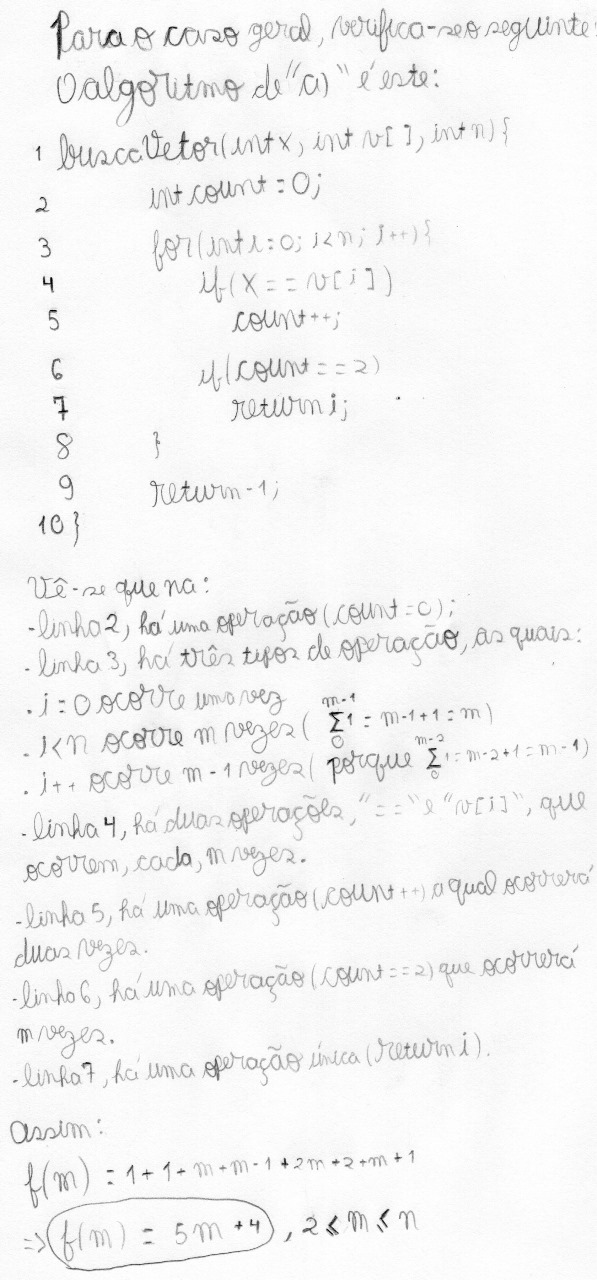 Para o caso geral, verifica-se o seguinte:
O algoritmo de "a)" é este:
1 buscaVetor(int x, int v[ ], int n){
2 int count = 0;
3 for(int i=0; i<n; i++){
4 if(x == v[i])
5 count++;
6 if(count == 2)
7 return i;
8 }
9 return -1;
10 }
Vê-se que na:
-linha 2, há uma operação (count = 0);
-linha 3, há três tipos de operação, as quais:
. i = 0 ocorre uma vez
. i<n ocorre m vezes ( m-1 Σ 0 1 = m-1+1 = m)
. i++ ocorre m-1 vezes ( porque m-2 Σ 0 1 = m-2+1 = m-1)
-linha 4, há duas operações, "==" e "v[i]", que
ocorrem, cada, m vezes.
-linha 5, há uma operação (count++) a qual ocorrerá
duas vezes.
-linha 6, há uma operação (count == 2) que ocorrerá
m vezes.
-linha 7, há uma operação única (return i).
Assim:
f(m) = 1+1+m+m-1+2m+2+m+1
=> f(m) = 5m+4 , 2 ≤ m ≤ n